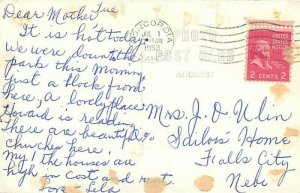 Dear Mother Tue.
It is hot today.
We were down to the
park this morning
just a block from
here, a lonely place.
Howard is reading
There are beautiful
churches here,
my! the houses are
high in cost and rent
Love - Lela
JUL 1
1953
POST CARD
ADDRESS
2 CENTS 2
Mrs. J. D. Ulin
Sailors' Home
Falls City
Nebr